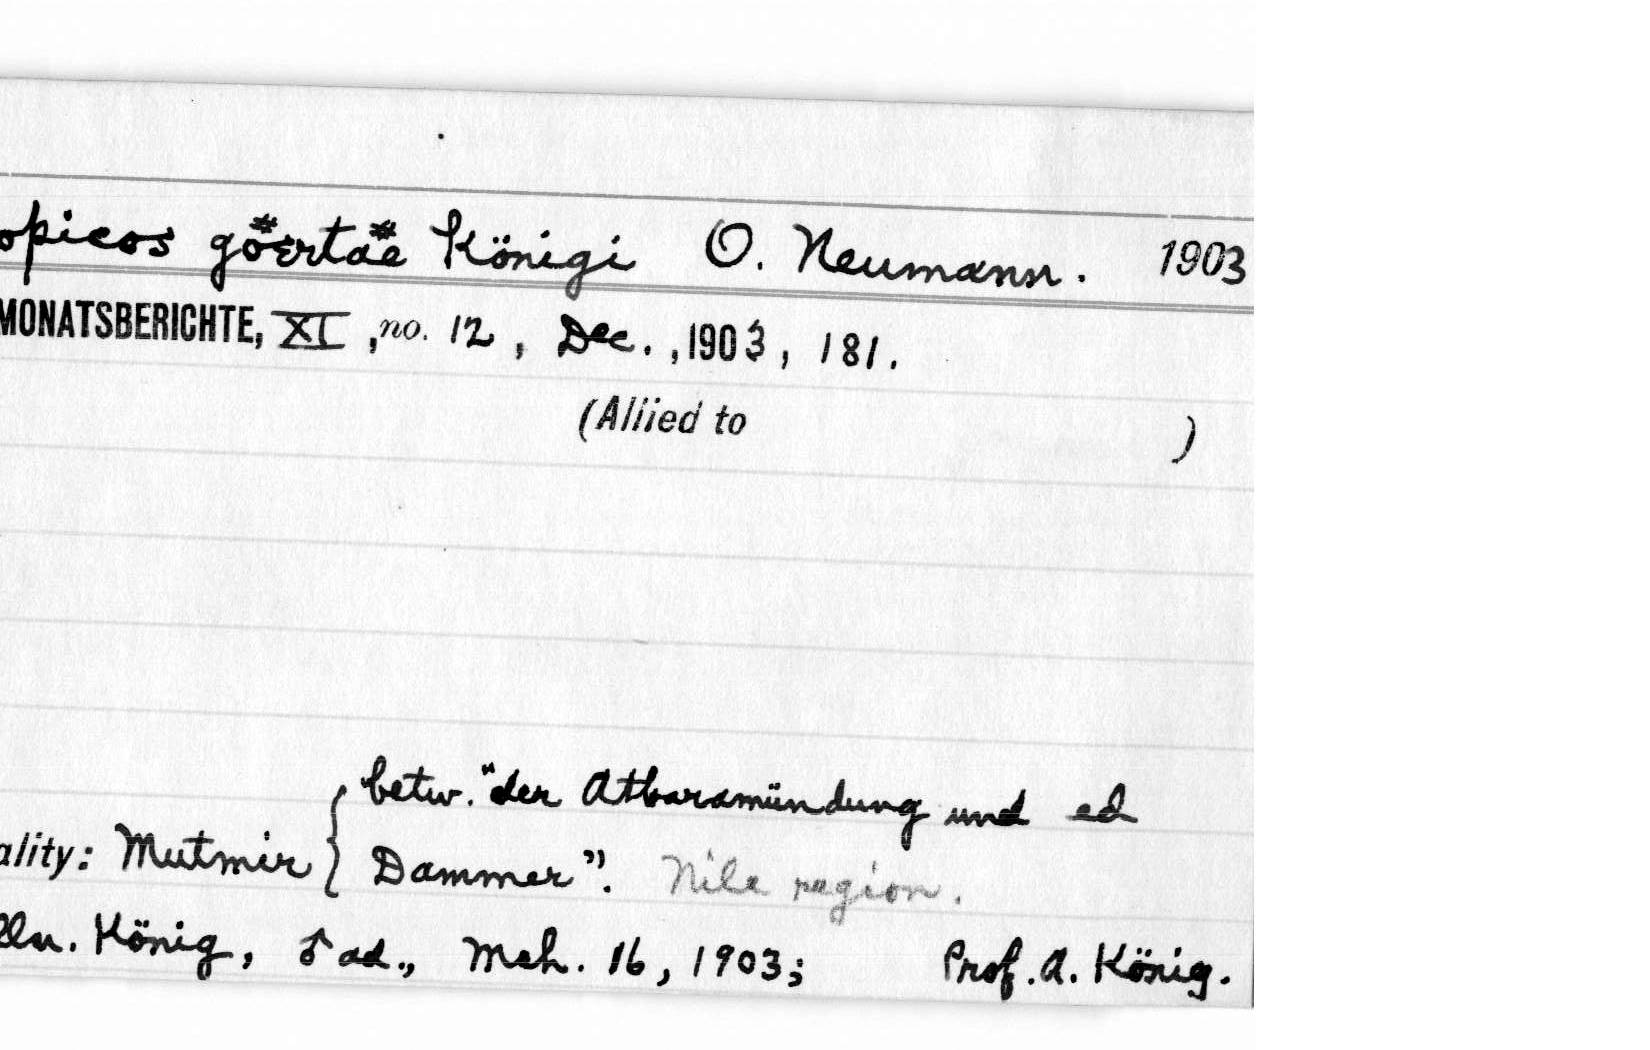 opicos göertae Königi O. Neumann. 1903
MONATSBERICHTE, XI, no. 12, Dec., 1903, 181.
(Allied to )
betw. "der Atbaramündung und ed
ality: Mutmir { Dammer". Nile region.
lln. König, ♂ ad., Mch. 16, 1903; Prof. A. König.